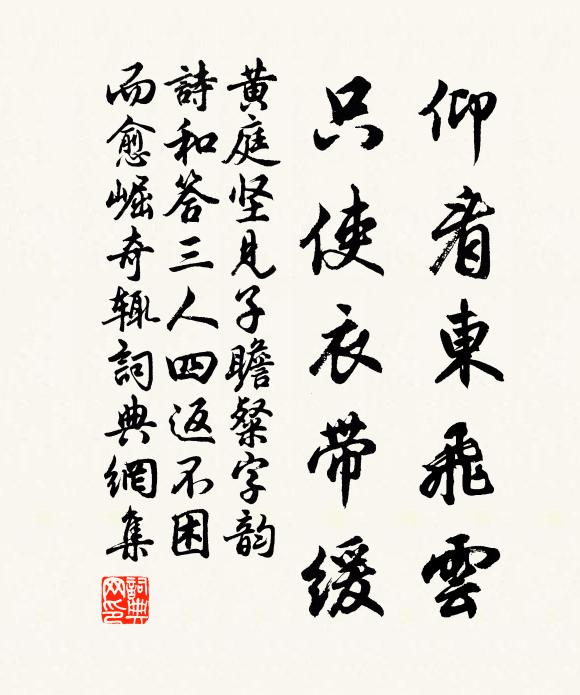 仰看東飛雲
只使衣帶緩
黃庭坚見子瞻粲字韵
詩和答三人四返不困
而愈崛奇輒詞典網集
詞典網印